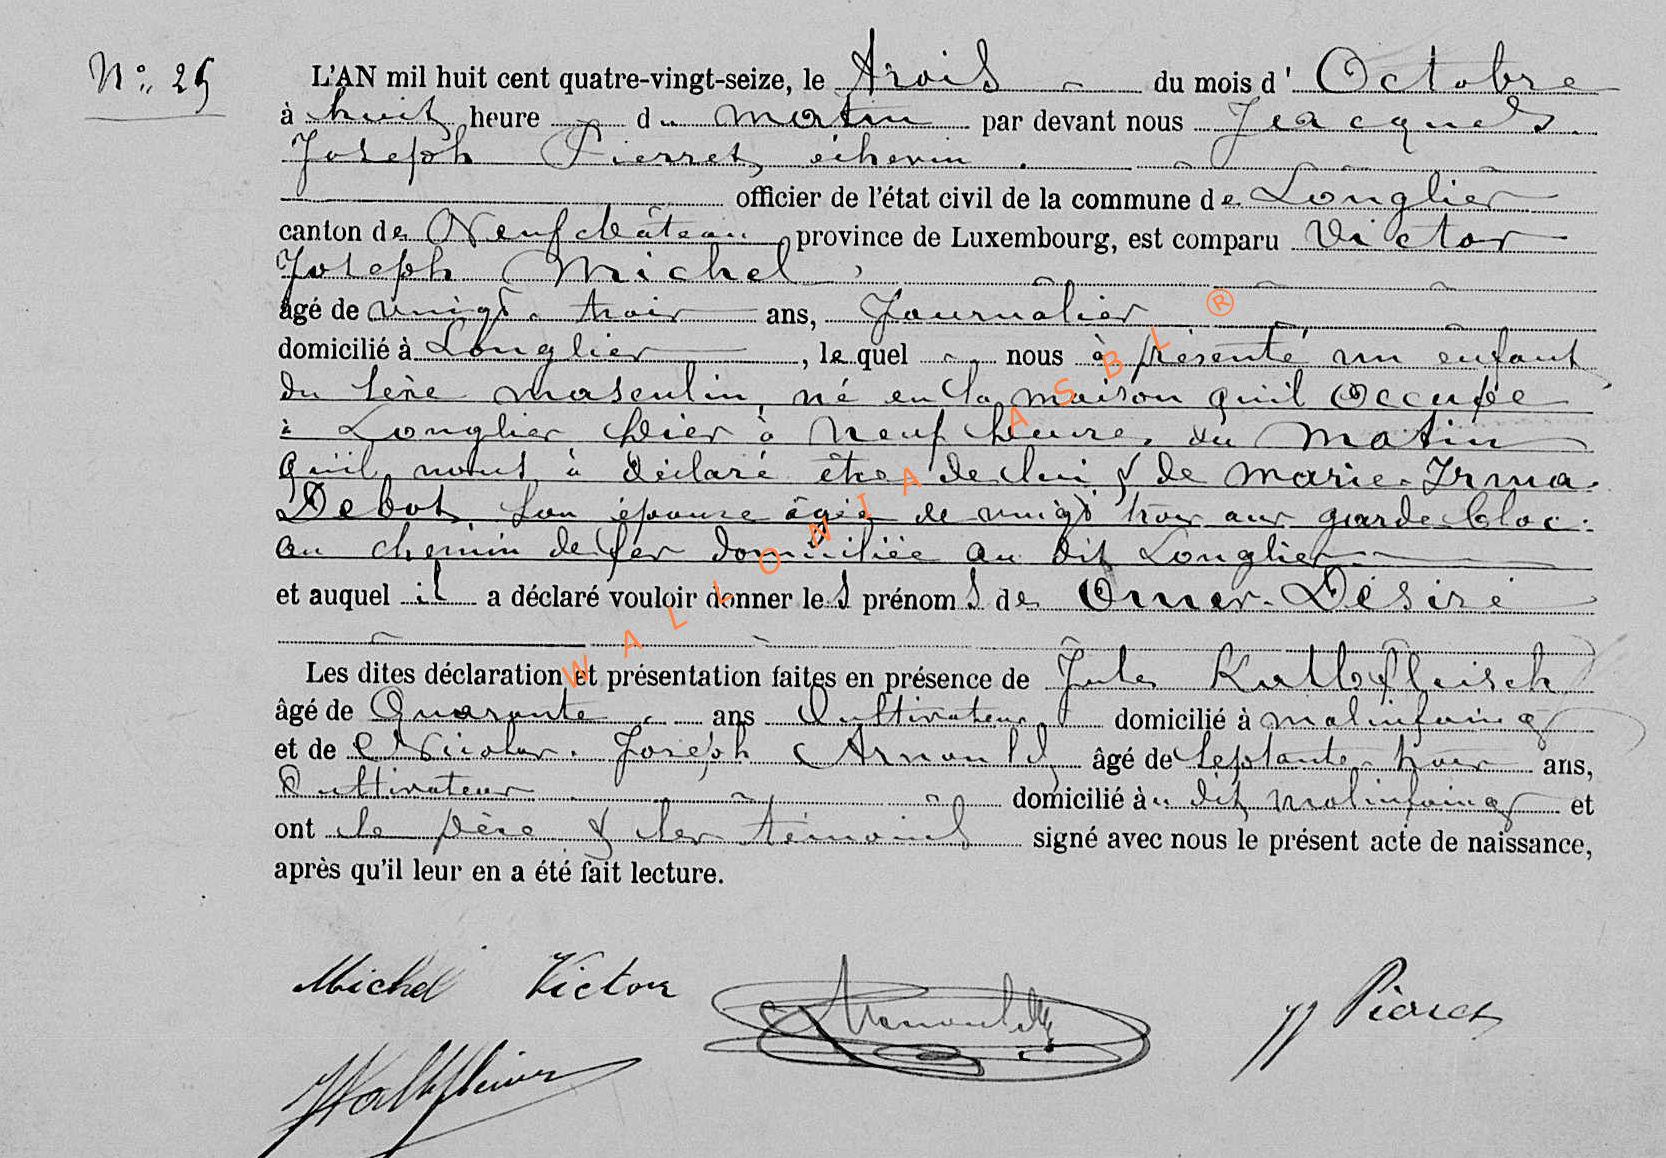 N° 25
L'AN mil huit cent quatre-vingt-seize, le trois du mois d' Octobre
à huit heure du matin par devant nous Jacques
Joseph Pierret, échevin
officier de l'état civil de la commune de Longlier
canton de Neufchâteau, province de Luxembourg, est comparu Victor
Joseph Michel,
âgé de vingt-trois ans, Journalier
domicilié à Longlier, lequel nous à présenté un enfant
du sexe masculin, né en la maison qu'il occupée
à Longlier hier à neuf heure du matin
qu'il nous à déclaré être de lui & de Marie-Irma
Debot, son épouse âgée de vingt trois ans garde bloc
au chemin de fer domiciliée au dit Longlier
et auquel il a déclaré vouloir donner les prénoms de Omer-Désiré
Les dites déclaration et présentation faites en présence de Jules Kalbfleisch
âgé de Quarante ans Cultivateur domicilié à Molinfaing
et de Nicolas-Joseph Arnould, âgé de septante-trois ans,
Cultivateur domicilié au dit Molinfaing et
ont le père & les témoins signé avec nous le présent acte de naissance,
après qu'il leur en a été fait lecture.
Michel Victor Arnould JJ Pierret
WALLONIA ASBL ®